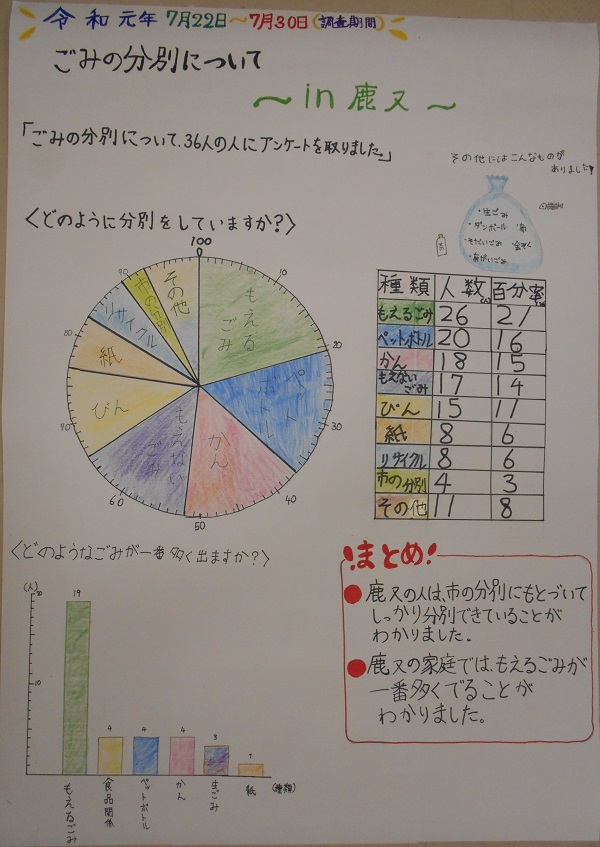 令和元年 7月22日～7月30日(調査期間)
ごみの分別について
～in鹿又～
「ごみの分別について、36人の人にアンケートを取りました。」
その他にはこんなものが
ありました
・生ごみ
・ダンボール ・布
・そだいごみ ・金ぞく
<どのように分別をしていますか？>
100
10
20
30
40
50
60
70
80
90
もえるごみ
ペットボトル
かん
もえないごみ
びん
紙
リサイクル
市の分別
その他
種類 人数(人) 百分率
もえるごみ 26 21
ペットボトル 20 16
かん 18 15
もえないごみ 17 14
びん 15 11
紙 8 6
リサイクル 8 6
市の分別 4 3
その他 11 8
<どのようなごみが一番多く出ますか？>
(人)
20
10
19
4
4
4
3
1
もえるごみ
食品関係
ペットボトル
かん
生ごみ
紙
(種類)
!まとめ!
●鹿又の人は、市の分別にもとづいて
しっかり分別できていることが
わかりました。
●鹿又の家庭では、もえるごみが
一番多くでることが
わかりました。